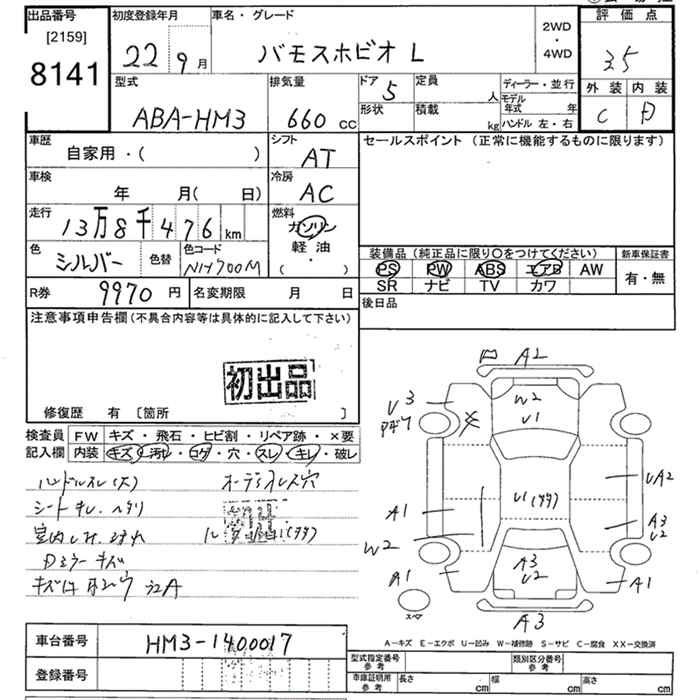 出品番号 初度登録年月 車名・グレード 評価点
[2159]
8141
22 9月 バモスホビオ L 2WD・4WD 3.5
型式 排気量 ドア 定員 ディーラー・並行 外装 内装
ABA-HM3 660 cc 5 人 モデル年式 年 C D
形状 積載 kg ハンドル 左・右
車歴 シフト セールスポイント (正常に機能するものに限ります)
自家用・( ) AT
車検 冷房
年 月( 日) AC
走行 燃料
13万8千476 km ガソリン
軽油
( ・ )
色 シルバー 色替 色コード NH700M
装備品 (純正品に限り○をつけてください) 新車保証書
PS PW ABS エアB AW 有・無
SR ナビ TV カワ
R券 9970 円 名変期限 月 日 後日品
注意事項申告欄 (不具合内容等は具体的に記入して下さい)
初出品
修復歴 有 [箇所 ]
検査員 FW キズ・飛石・ヒビ割・リペア跡・×要
記入欄 内装 キズ 汚れ・コゲ・穴・スレ・キレ・破レ
ハンドルスレ(大) オーディオレス穴
シートキレ・ヘタリ
Dミラーキズ
A2
W2
U1
U3
U1
A1
W2
A1
UA2
A3
U2
A1
A3
U2
A3
スペア
A-キズ E-エクボ U-凹み W-補修跡 S-サビ C-腐食 XX-交換済
車台番号 HM3-1400017
登録番号
型式指定番号 参考 類別区分番号 参考
車庫証明用 参考 長さ cm 幅 cm 高さ cm